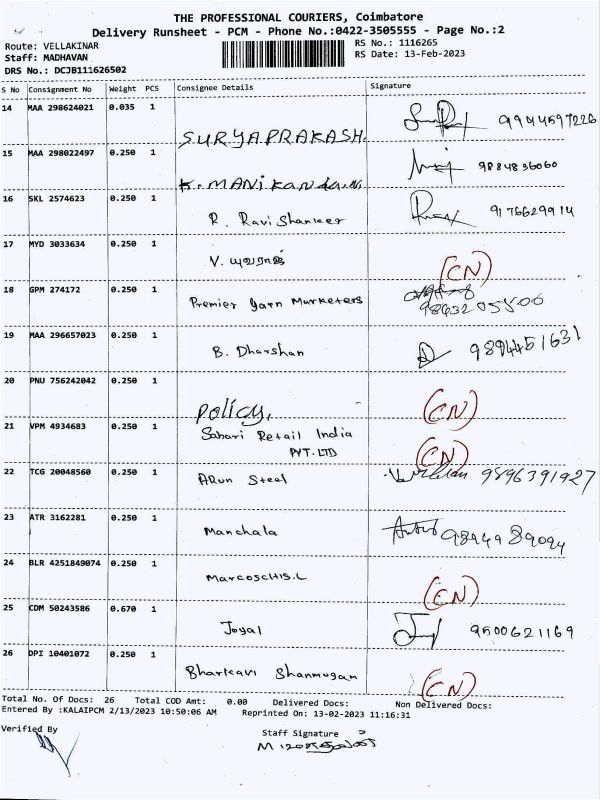 THE PROFESSIONAL COURIERS, Coimbatore
Delivery Runsheet - PCM - Phone No.:0422-3505555 - Page No.:2
Route: VELLAKINAR
RS No.: 1116265
Staff: MADHAVAN
RS Date: 13-Feb-2023
DRS No.: DCJB111626502
S No Consignment No Weight PCS Consignee Details Signature
14 MAA 298624021 0.035 1 SURYAPRAKASH. 9944597226
15 MAA 298022497 0.250 1 K. MANIKANDAN 9884836060
16 SKL 2574623 0.250 1 R. Ravi Shankeer 9176629914
17 MYD 3033634 0.250 1 V. யுவராஜ் (CN)
18 GPM 274172 0.250 1 Premier Yarn Marketers
19 MAA 296657023 0.250 1 B. Dharshan 9894451631
20 PNU 756242042 0.250 1 Policy, (CN)
21 VPM 4934683 0.250 1 Sabari Retail India (CN)
PVT. LTD
22 TCG 20048560 0.250 1 ARun Steel 9896391927
23 ATR 3162281 0.250 1 Manchala
24 BLR 4251849074 0.250 1 (CN)
25 CDM 50243586 0.670 1 Joyal 9500621169
26 DPI 10401072 0.250 1 Bharkavi Shanmugam (CN)
Total No. Of Docs: 26 Total COD Amt: 0.00 Delivered Docs: Non Delivered Docs:
Entered By :KALAIPCM 2/13/2023 10:50:06 AM Reprinted On: 13-02-2023 11:16:31
Verified By
Staff Signature